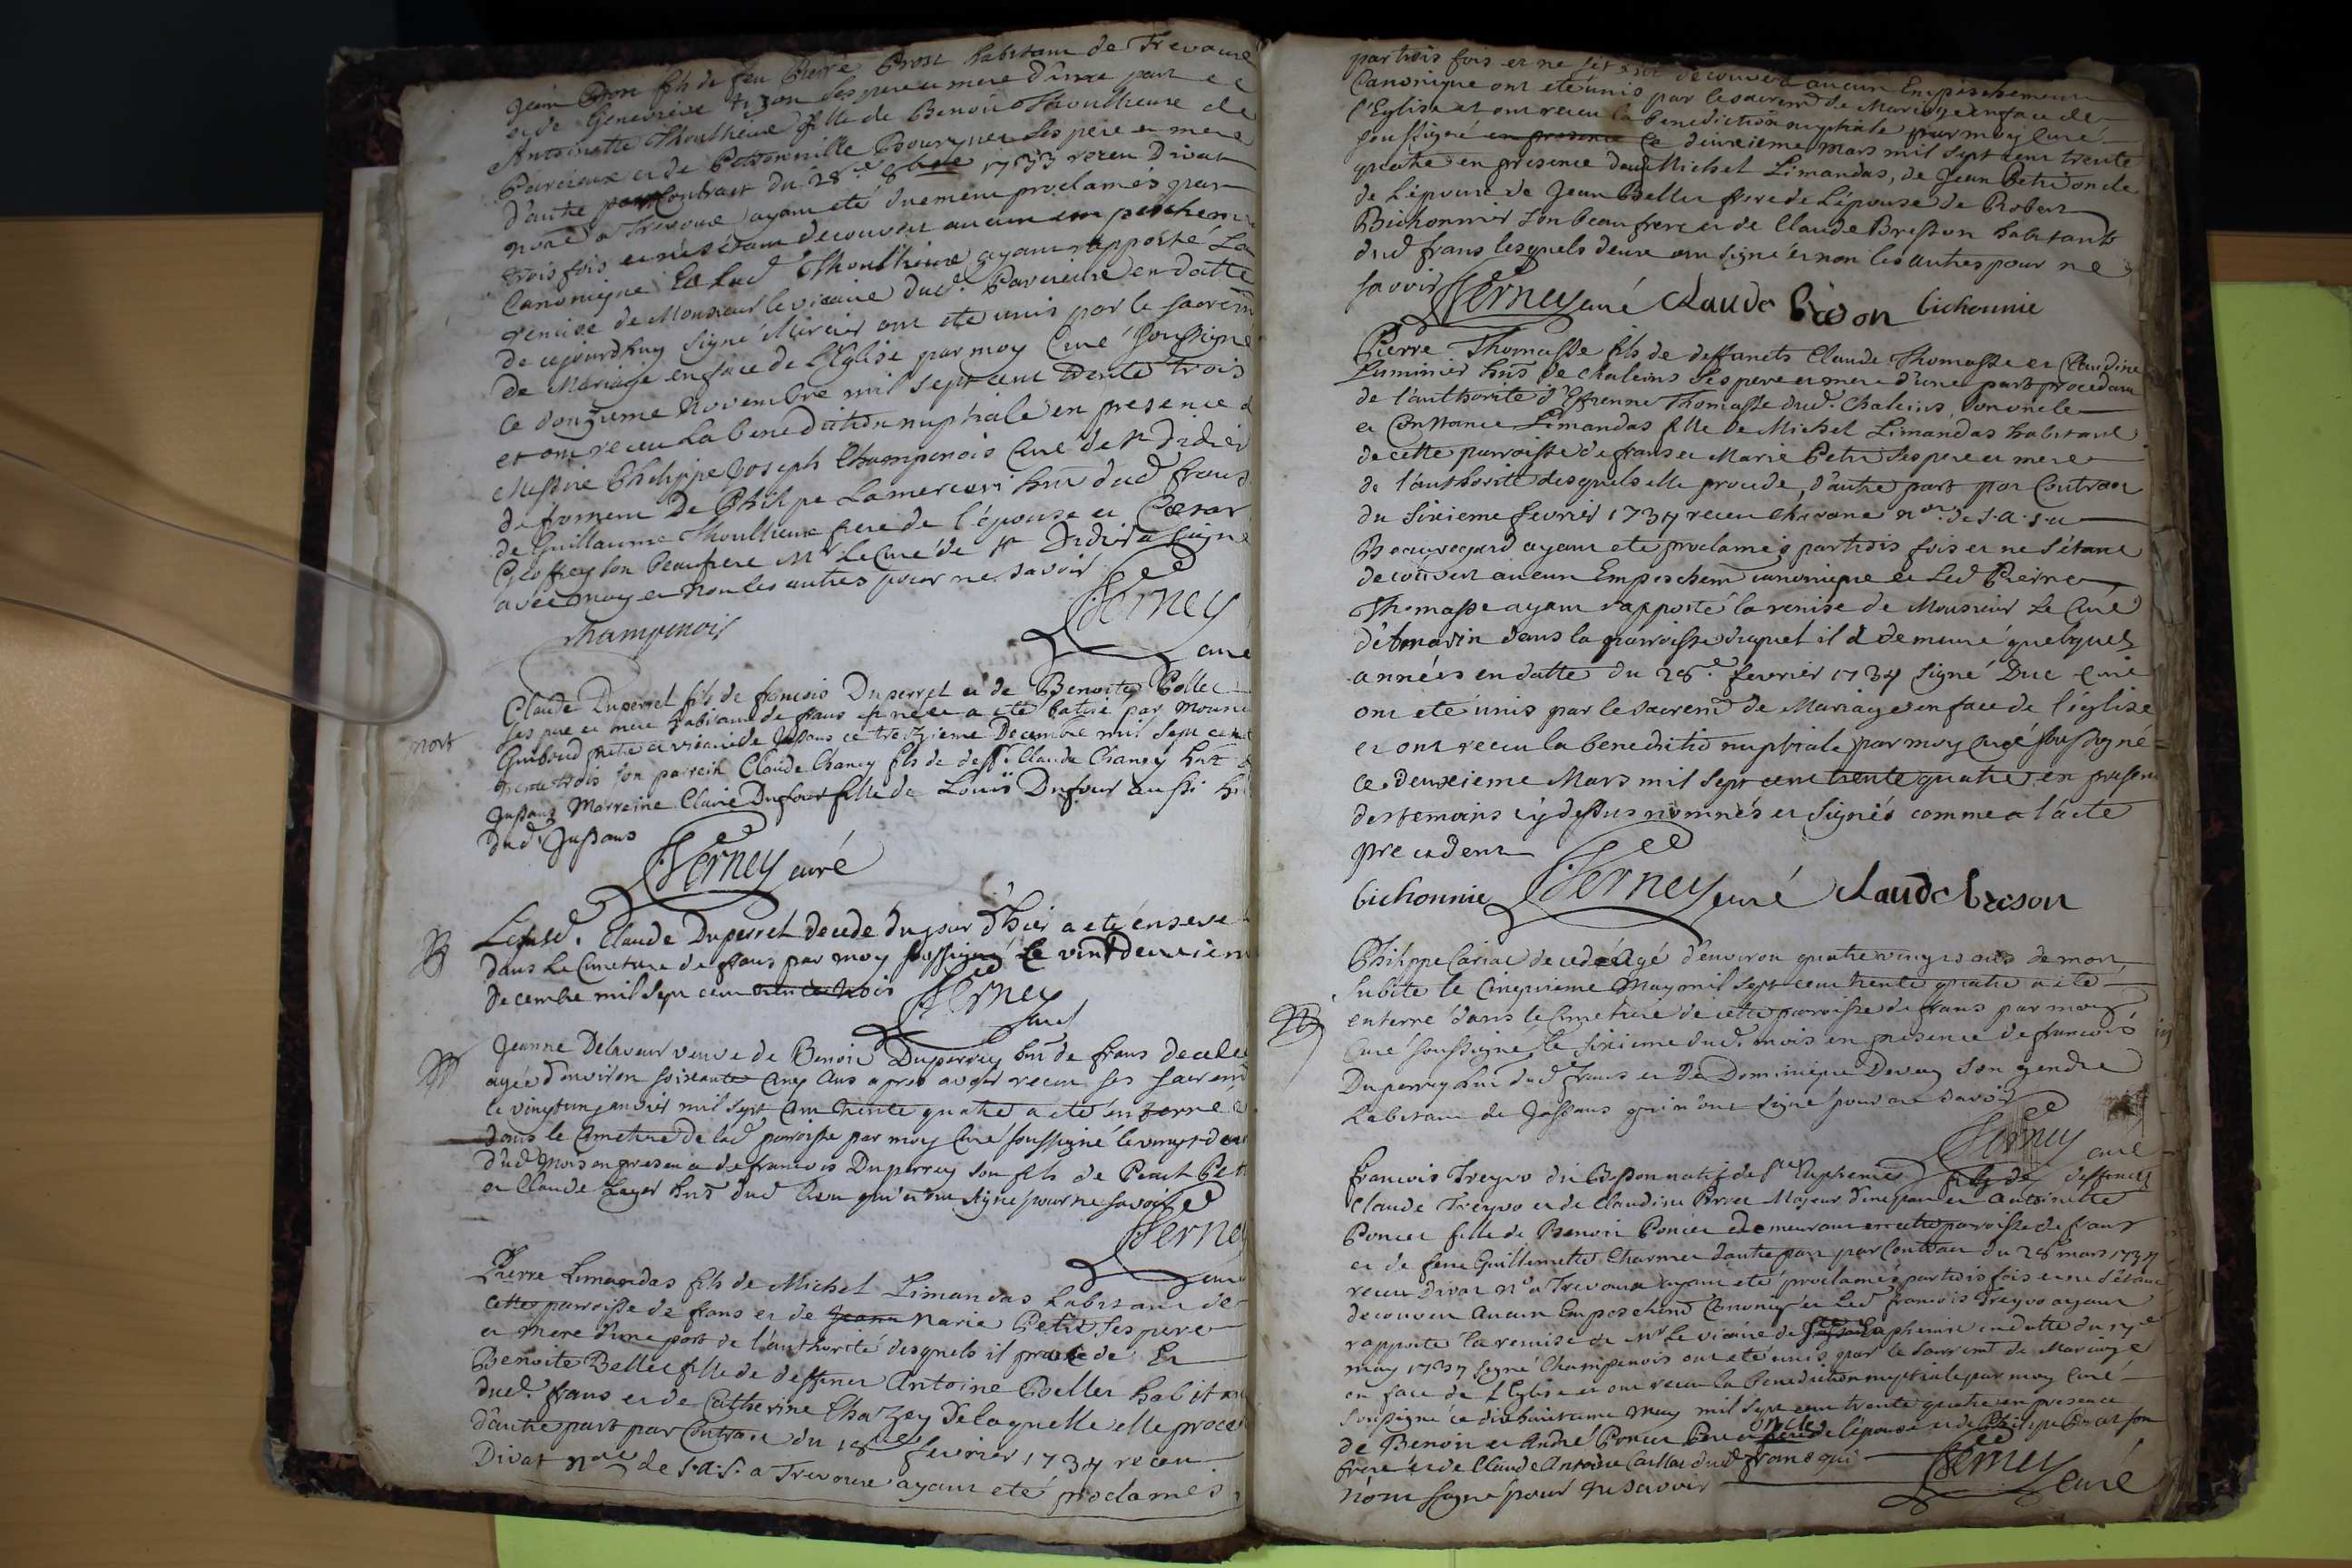 Jean Prost fils de feu Pierre Prost habitant de Trevoux
et de Genevieve ses pere et mere d'une part et
Antoinette Thoulieux fille de Benoit Thoulieux de
Parcieux et de Petronille ses pere et mere
d'autre part Contract du 28e 8bre 1733 receu Divat
a Trevoux ayant eté duement proclamés par
trois fois et ne s'étant decouvert aucun empeschemt
Canonique lad Thoulieux ayant rapporté la
remise de Monsieur le vicaire dud. Parcieux en datte
de cejourdhuy signé Mercier ont eté unis par le sacremt
de Mariage en face de l'Eglise par moy Curé soussigné
ce Novembre mil sept cent trente trois
et ont receu la benediction nuptiale en presence d
Messire Philippe Joseph Champenois Curé de st Didier
de froment De Philipe dud frans
de Guillaume Thoulieux frere de l'épouse et
Geoffray son beaufrere Mr Le Curé de st Didier a signé
avec moy et non les autres pour ne savoir
Champenois
Verney
curé
Claude Duperret fils de francois Duperret et de Benoite Bollet
ses pere et mere habitans de frans est né et a eté batisé par Monsr
mort
Guiboud pretre et vicaire de Jassans ce treizieme Decembre mil sept cent
trente trois son parrein Claude Chaney fils de deff. Claude Chaney
Jassans Marraine Claire Dufour fille de Louis Dufour aussi
dud Jassans
Verney curé
Lesusd. Claude Duperret decedé du jour d'hier a eté enseve
dans le Cimetiere de frans par moy soussigné Le vint deuxiem
Decembre mil sept cent trente trois
Verney
curé
Jeanne Delaveur veuve de Benoit Duperrey de frans decede
agée d'environ soixante cinq ans apres avoir receu ses sacremt
le vingt un janvier mil sept cent trente quatre a eté enterree
dans le Cimetiere de lad parroisse par moy Curé soussigné le vingt deux
dud Mois en presence de francois Duperrey son fils de
et Claude dud lieu qui n'ont signé pour ne savoir
Verney
curé
Pierre Limandas fils de Michel Limandas habitant de
cette parroisse de frans et de Jeann Marie Petit ses pere
et mere d'une part de l'authorité desquels il procede Et
Benoite Bellet fille de deffunct Antoine Bellet habitant
dud. frans et de Catherine Chazey De laquelle elle proce
d'autre part par Contract du 18e fevrier 1734 receu
Divat de s.a.s. a Trevoux ayant eté proclamés
partrois fois et ne s'etant decouvert aucun Empeschement
Canonique ont eté unis par le sacremt de Mariage en face de
l'Eglise et ont receu la benediction nuptiale par moy Curé
soussigné en presence Ce deuxieme Mars mil sept cent trente
quatre en presence dud Michel Limandas, de Jean Petit oncle
de L'épouse de Jean Bellet frere de L'épouse de Robert
Bichonnier son beaufrere et de Claude Bresson habitants
dud frans lesquels deux ont signé et non les autres pour ne
savoir
Verney curé Claude bresson bichonnie
Pierre Thomasse fils de deffuncts Claude Thomasse et Claudine
Luminier de chaleins ses pere et mere d'une part procedant
de l'authorité d'Estienne Thomasse dud. Chaleins, son oncle
et Constance Limandas fille de Michel Limandas habitant
de cette parroisse de frans et Marie Petit ses pere et mere
de l'authorité desquels elle procede, d'autre part par Contract
du sixieme fevrier 1734 receu de s.a.s a
Beauregard ayant eté proclamés partrois fois et ne s'étant
decouvert aucun Empeschemt canonique et Led Pierre
Thomasse ayant rapporté la remise de Monsieur Le Curé
dans la parroisse duquel il a demeuré quelques
années en datte du 28e fevrier 1734 signé Duc Curé
ont eté unis par le sacremt de Mariage en face de l'église
et ont receu la benedictio nuptiale par moy curé soussigné
ce deuxieme Mars mil sept cent trente quatre en presence
des temoins cy dessus nommés et signés comme a l'acte
precedent
bichonnie Verney curé Claude breson
Philippe Cariat decedé agé d'environ quatrevingts ans de mort
subite le Cinquieme May mil sept cent trente quatre a eté
enterré dans le Cimetiere de cette parroisse de frans par moy
Curé soussigné le sixieme dud. mois en presence de francois
Duperrey dud frans et De Dominique Devey son gendre
habitant de Jassans qui n'ont signé pour ne savoir
Verney curé
francois Treyvo du natif de ste Euphemie fils de deffuncts
Claude Treyvo et de Claudine Perret Majeur d'une part et Antoinette
Poncet fille de Benoit Poncet demeurant en cette parroisse de frans
et de feue Guillemette Charmet d'autre part par Contract du 28 mars 1734
receu Divat a Trevoux ayant eté proclamés partrois fois et ne s'etant
decouvert aucun Empeschemt Canonique et led francois Treyvo ayant
rapporté la remise de Mr Le vicaire de en datte du 17e
may 1734 signé Champenois ont eté unis par le sacremt de Mariage
en face de L'Eglise et ont receu la benediction nuptiale par moy Curé
soussigné ce dixhuitieme May mil sept cent trente quatre en presence
de Benoit et André Poncet Pere et oncle de l'épouse et de Philipe son
frere et de Claude Antoine dud frans qui
n'ont signé pour ne savoir
Verney curé